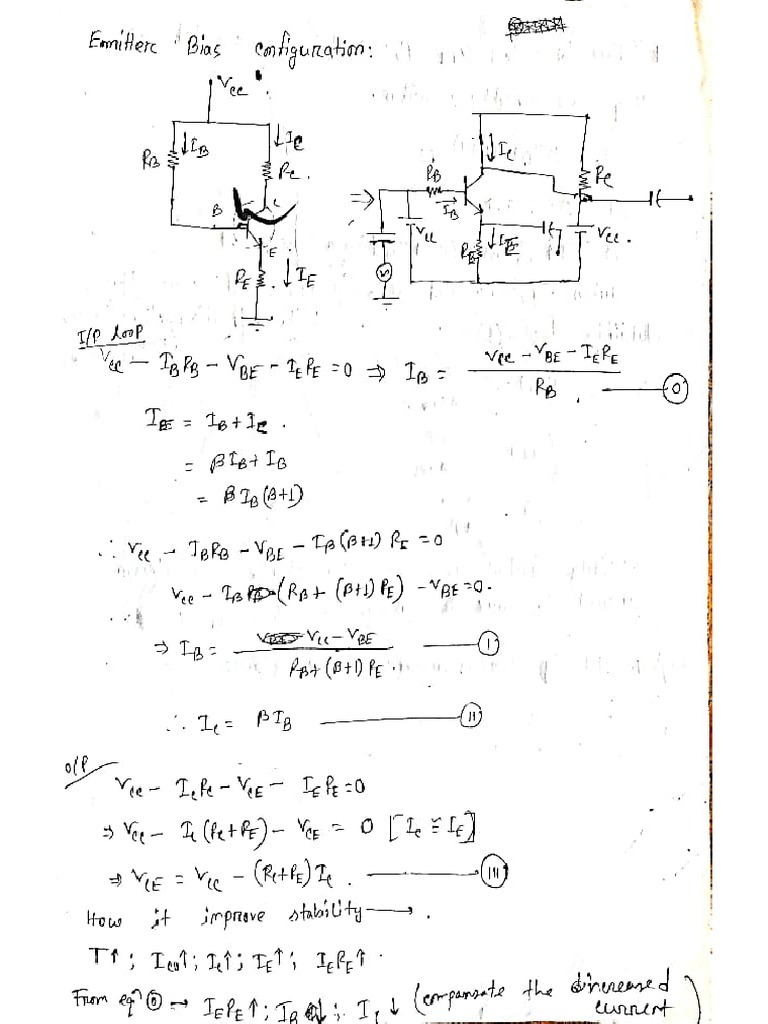 Emitterc Bias configuration:
Vcc
IB
Ic
RB
Rc
B
C
E
RE
IE
⇒
Ic
RB
IB
Vcc
Rc
RE
IE
Vcc
I/P loop
Vcc - IBRB - VBE - IERE = 0 ⇒ IB = (Vcc - VBE - IERE) / RB ——— (0)
IE = IB + Ic.
= βIB + IB
= βIB (β+1)
∴ Vcc - IBRB - VBE - IB(β+1) RE = 0
Vcc - IB (RB + (β+1) RE) - VBE = 0.
⇒ IB = (Vcc - VBE) / (RB + (β+1) RE) ——— (I)
∴ Ic = βIB ——— (II)
O/P
Vcc - IcRc - VCE - IERE = 0
⇒ Vcc - Ic (Rc+RE) - VCE = 0 [Ic ≅ IE]
⇒ VCE = Vcc - (Rc+RE) Ic. ——— (III)
How it improve stability ⟶ .
T↑ ; Ico↑ ; Ic↑ ; IE↑ ; IERE↑ .
From eqn (0) → IERE↑ ; IB↓ ; Ic↓ (compansate the increased current)